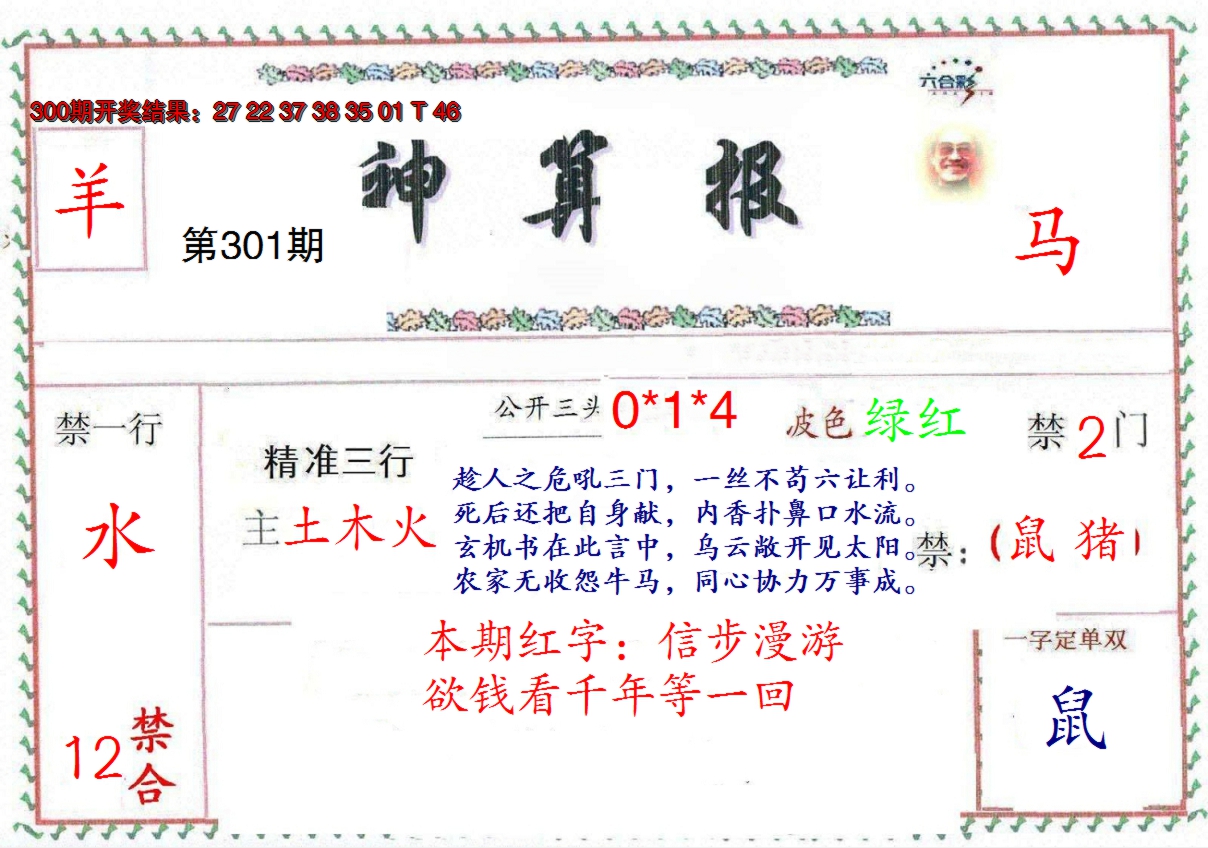 六合彩
300期开奖结果：27 22 37 38 35 01 T 46
羊
神算报
第301期
马
禁一行
水
12
禁合
精准三行
主土木火
公开三头 0*1*4
波色 绿红
禁2门
趁人之危吼三门，一丝不苟六让利。
死后还把自身献，内香扑鼻口水流。
玄机书在此言中，乌云敞开见太阳。
农家无收怨牛马，同心协力万事成。
禁：（鼠 猪）
本期红字：信步漫游
欲钱看千年等一回
一字定单双
鼠